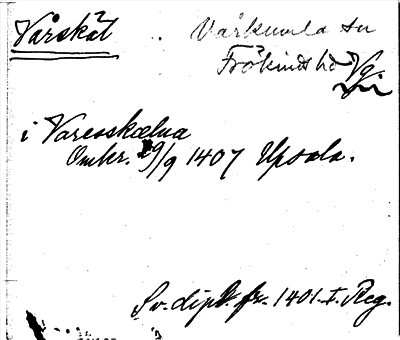 Vårskäl . Vårkumla sn
Frökinds hd Vg
i Varesskælua
Omkr. 29/9 1407 Upsala.
Sv. dipl. fr. 1401. I. Reg.